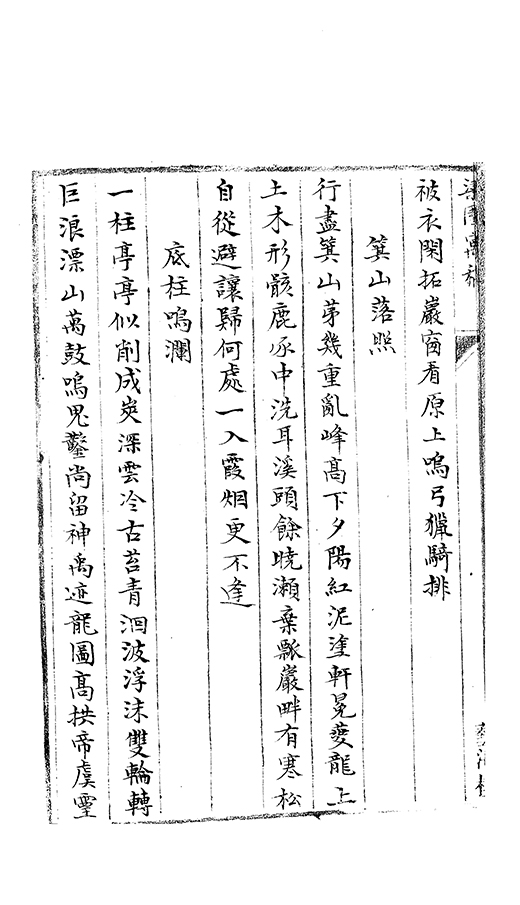 梁園寓稿
被衣閑拓巖窗看原上鳴弓獵騎排
箕山落照
行盡箕山第幾重亂峰高下夕陽紅泥塗軒冕夔龍上
土木形骸鹿豕中洗耳溪頭餘曉瀨棄瓢巖畔有寒松
自從避讓歸何處一入霞烟更不逢
底柱鳴瀾
一柱亭亭似削成莢深雲冷古苔青洄波浮沫雙輪轉
巨浪漂山萬鼓鳴鬼鑿尚留神禹迹龍圖高拱帝虞靈